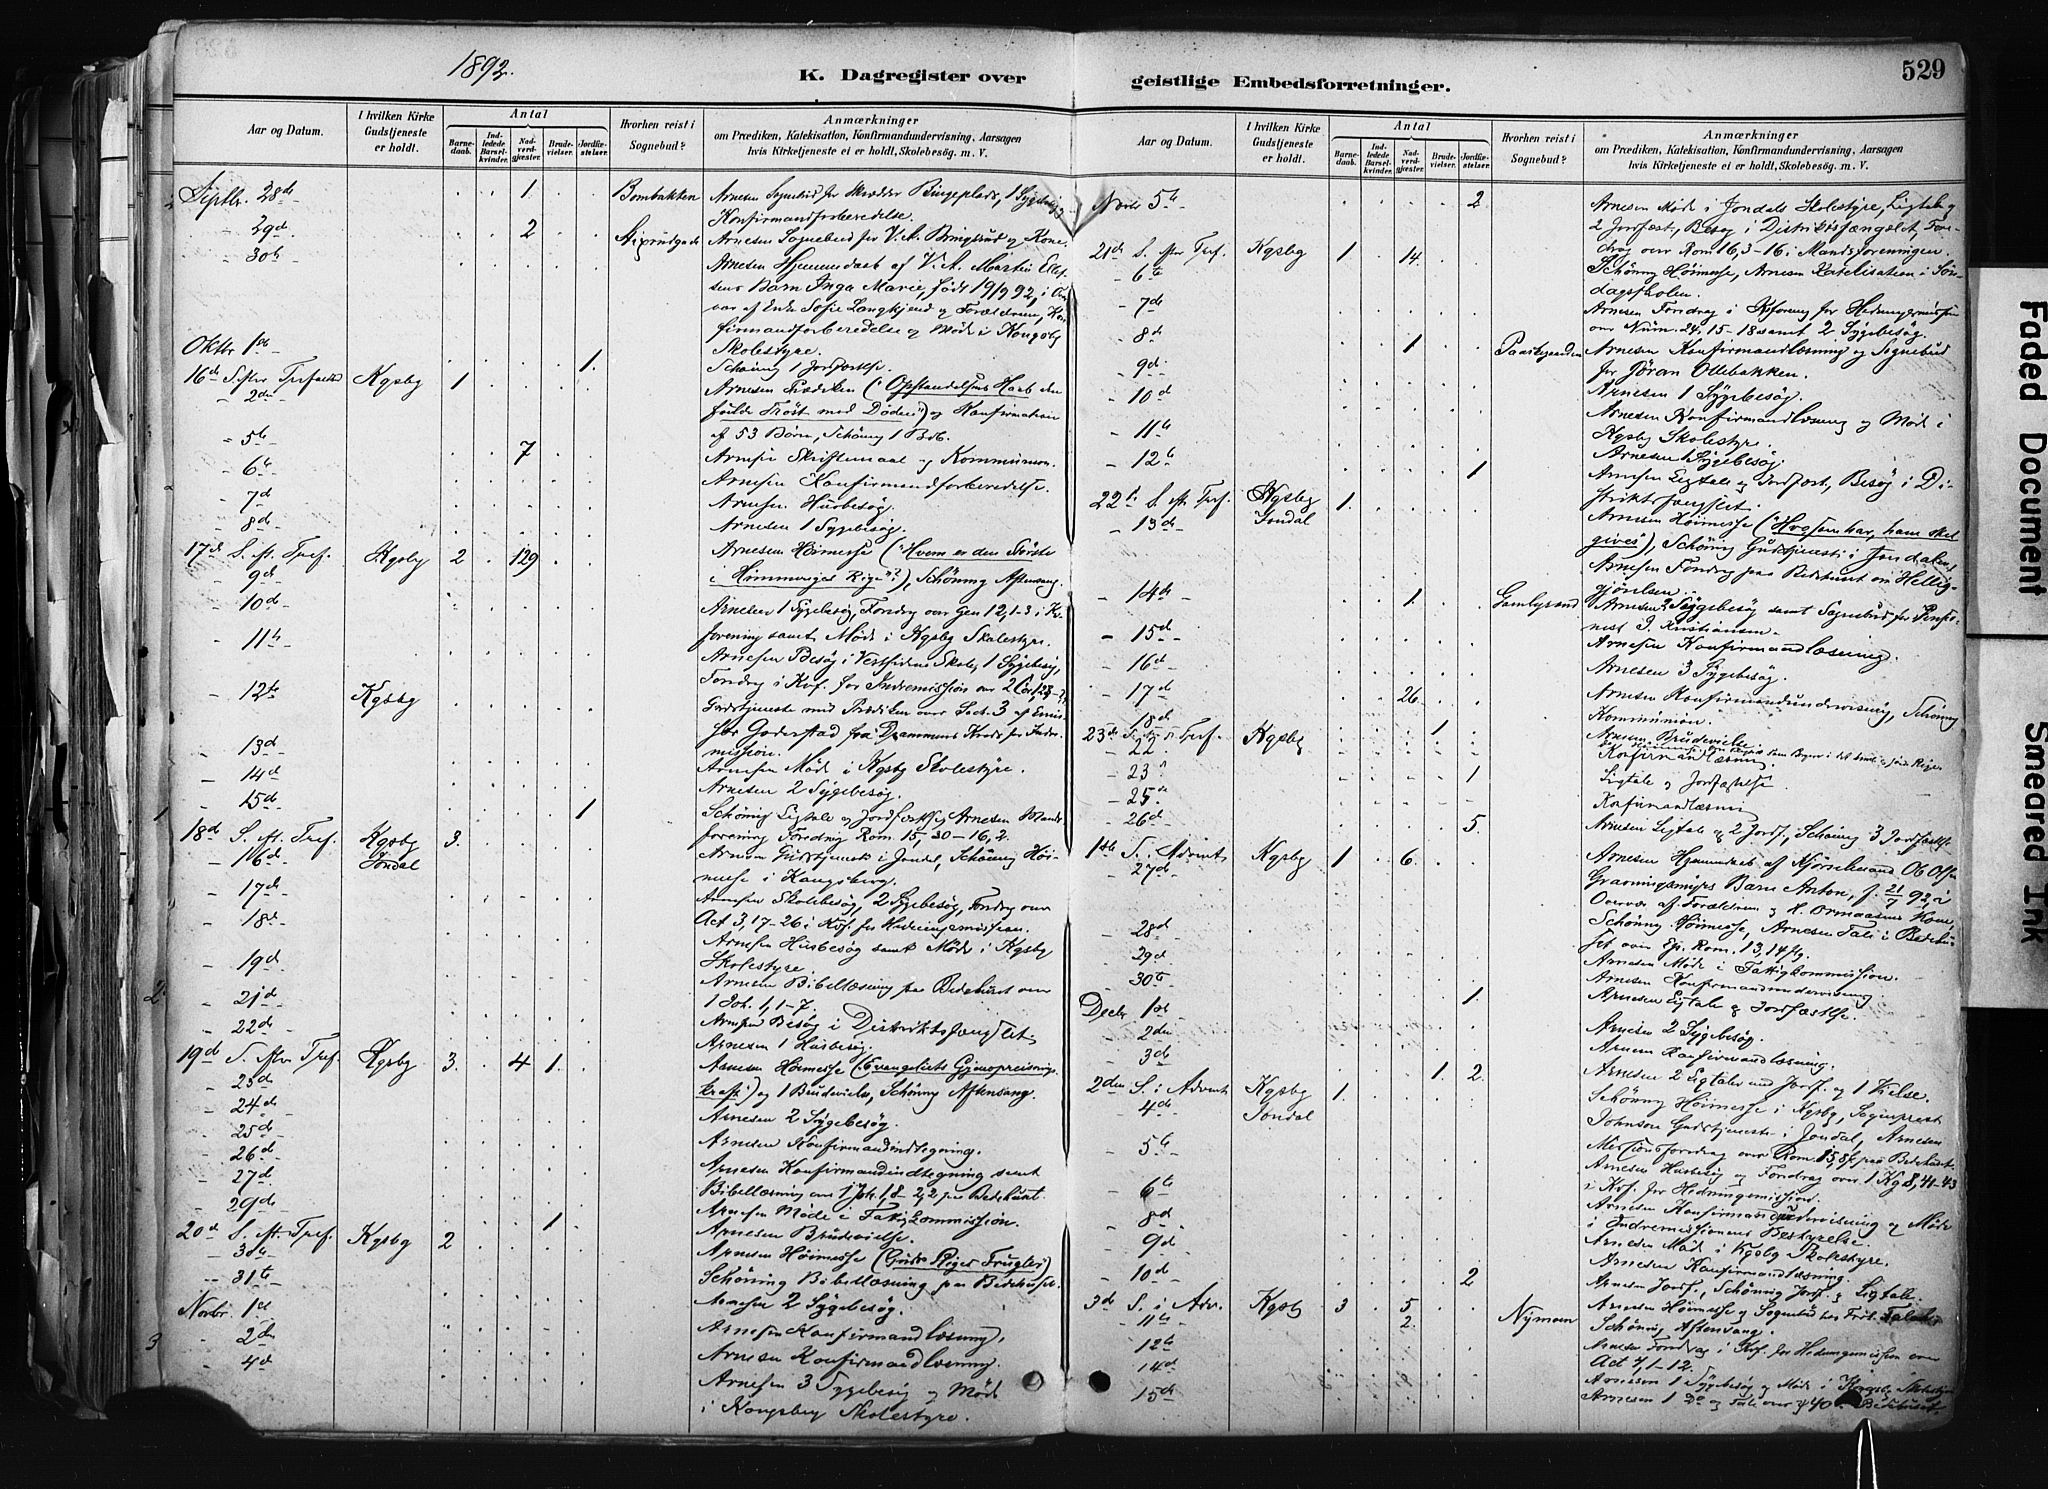 1892.
K. Dagregister over
geistlige Embedsforretninger.
529
Aar og Datum.
I hvilken Kirke Gudstjeneste er holdt.
Antal
Barne-daab.
Ind-ledede Barsel-kvinder.
Nad-verd-gjester.
Brude-vielser.
Jordfæ-stelser.
Hvorhen reist i Sognebud?
Anmærkninger
om Prædiken, Katekisation, Konfirmandundervisning, Aarsagen
hvis Kirketjeneste ei er holdt, Skolebesøg. m. V.
Septbr. 28de 1 Bombakken Arnesen Sognebud for Skrædder Bingeplads, 1 Sygebesøg
Konfirmandforberedelse.
- 29de 2 Arnesen Sognebud for V. A. Bingsrud og Kone.
- 30te Arnesen Hjemmedaab af
Barn Inga Marie, født 19/9 92, i
af Enke Sofie Langkjend og Forældrene, Kon-
firmandforberedelse og Møde i Kongsbg
Skolestyre.
Oktbr 1ste 1. Schøning 1 Jordfæstelse.
16de S. efter Trefoldi. Kgsbg 1
- 2den Arnesen Prædiken (Opstandelsens Haab den
fulde Trøst mod Døden) og Konfirmation
af 53 Børn, Schøning 1 Bdb.
- 5te 7 Arnesen Skriftemaal og Kommunion.
- 6te Arnesen Konfirmandforberedelse.
- 7de Arnesen Husbesøg.
- 8de Arnesen 1 Sygebesøg.
17de S. eft. Tref. Kgsbg 2 129 Arnesen Høimesse ("Hvem er den Største
- 9de i Himmeriges Rige"?), Schøning Aftensang.
- 10de Arnesen 1 Sygebesøg, Foredrag over Gen 12,1-3 i K-
forening samt Møde i Kgsbg Skolestyre.
- 11te Arnesen Besøg i Vestsidens Skole, 1 Sygebesøg,
Foredrag i Kvf. for Indremission over 2 Cor.
- 12te Kgsbg Gudstjeneste med Prædiken over Sact. 3 af Emis-
sær Goderstad fra Drammens Kreds for Indre-
mission.
- 13de Arnesen Møde i Kgsbg Skolestyre.
- 14de Arnesen 2 Sygebesøg.
- 15de 1 Schøning Ligtale og Jordfæstelse, Arnesen Mands-
forening Foredrag Rom. 15,30-16,2.
18de S. eft. Tref. Kgsbg 3.
- 16de Jondal Arnesen Gudstjeneste i Jondal, Schøning Høi-
messe i Kongsberg.
- 17de Arnesen Skolebesøg, 2 Sygebesøg, Foredrag over
- 18de Act 3,17-26 i Kvf. for Hedningemissionen.
Arnesen Husbesøg samt Møde i Kgsbg
- 19de Skolestyre.
Arnesen Bibellæsning paa Bedehuset over
- 21de 1 Joh. 1,1-7.
- 22de Arnesen Besøg i Distriktsfængslet
Arnesen 1 Husbesøg.
19de S. efter Tref. Kgsbg 3. 4 1. Arnesen Høimesse (Evangeliets Gjenopreisnings-
- 23de kraft) og 1 Brudevielse, Schøning Aftensang.
- 24de Arnesen 2 Sygebesøg.
- 25de Arnesen Konfirmandindtegning.
- 26de Arnesen Konfirmandindtegning samt
- 27de Bibellæsning over 1 Joh. 1,8-2,2 paa Bedehuset.
- 29de 1 Arnesen Møde i Fattigkommission.
Arnesen Brudevielse.
20de S. eft. Tref. Kgsbg 2
- 30te Arnesen Høimesse (Guds Riges Frugter)
- 31te Schøning Bibellæsning paa Bedehuset.
Novbr. 1ste Arnesen 2 Sygebesøg.
- 2den Arnesen Konfirmandlæsning.
- 4de Arnesen Konfirmandlæsning.
Arnesen 3 Sygebesøg og Møde
i Kongsberg Skolestyre.
Aar og Datum.
I hvilken Kirke Gudstjeneste er holdt.
Antal
Barne-daab.
Ind-ledede Barsel-kvinder.
Nad-verd-gjester.
Brude-vielser.
Jordfæ-stelser.
Hvorhen reist i Sognebud?
Anmærkninger
om Prædiken, Katekisation, Konfirmandundervisning, Aarsagen
hvis Kirketjeneste ei er holdt, Skolebesøg. m. V.
Novbr 5te 2 Arnesen Møde i Jondals Skolestyre, Ligtale og
2 Jordfæst., Besøg i Distriktsfængslet, Fore-
drag over Rom 16,3-16 i Mandsforeningen.
21de S. efter Tref. Kgsbg 1. 14.
- 6te Schøning Høimesse, Arnesen Katekisation i Søn-
dagsskolen.
- 7de Arnesen Foredrag i Kvforening for Hedningemission
over Num. 24,15-18 samt 2 Sygebesøg.
- 8de 1 Arnesen Konfirmandlæsning og Sognebud
for Jøran Ollebakken.
- 9de Arnesen 1 Sygebesøg.
- 10de Arnesen Konfirmandlæsning og Møde i
Kgsbg Skolestyre.
- 11te Arnesen 1 Sygebesøg.
- 12te 1 Arnesen Ligtale og Jordfæst., Besøg i Di-
striktsfængslet.
22de S. eft. Tref. Kgsbg 1.
- 13de Jondal Arnesen Høimesse ("Hvo som har, ham skal
gives"), Schøning Gudstjeneste i Jondalen,
Arnesen Foredrag paa Bedehuset om Hellig-
gjørelsen.
- 14de 1. Arnesen Sygebesøg samt Sognebud for Pensjo-
nist J. Kristiansen.
- 15de Arnesen Konfirmandlæsning.
- 16de Arnesen 3 Sygebesøg.
- 17de 26 Arnesen Konfirmandundervisning, Schøning
Kommunion.
- 18de 1 Arnesen Brudevielse
23de S. eft. Tref. Kgsbg
- 22. Konfirmandlæsning.
- 23 1 Ligtale og Jordfæstelse
- 25de Konfirmandlæsning
- 26de 5. Arnesen Ligtale og 2 Jordf., Schøning 3 Jordfæstelse
1ste S. i Advent Kgsbg 1 6.
- 27de Arnesen Hjemmedaab af Ob Olsen
Gravningsmyrs Barn Anton, f. 21/7 92, i
Overvær af Forældrene og H. Ormaasens Kone,
Schøning Høimesse, Arnesen Tale i Bedehu-
set over Ep. Rom. 13,14flg.
- 28de Arnesen Møde i Fattigkommission.
- 29de Arnesen Konfirmandundervisning.
- 30te 1. Arnesen Ligtale og Jordfæstelse.
Decbr 1ste Arnesen 2 Sygebesøg.
- 2den Arnesen Konfirmandlæsning.
- 3de 1 2. Arnesen 2 Ligtaler ved Jordf. og 1 Vielse.
2den S. i Advent Kgsbg 1.
- 4de Jondal Schøning Høimesse i Kgsbg, Sogneprest
Johnson Gudstjeneste i Jondal, Arnesen
Missionsforedrag over Rom. 15,8f. paa Bedehuset.
- 5te Arnesen Husbesøg og Foredrag over 1 Kg 8,41-43
i Kvf. for Hedningemission.
- 6te Arnesen Konfirmandundervisning og Møde
i Indremissionens Bestyrelse.
- 8de Arnesen Møde i Kgsbg Skolestyre.
- 9de Arnesen Konfirmandlæsning.
- 10de 2 Arnesen Jordf., Schøning Jordf. og Ligtale.
3de S. i Adv. Kgsbg 3 5.
- 11te 2. Nymoen Arnesen Høimesse og Sognebud hos
Schøning Aftensang.
- 12te Arnesen Foredrag i Kvf. for Hedningemission over
Act 7,1-12.
- 14de Arnesen 1 Sygebesøg og Møde i Kongsbg Skolestyre
- 15de Arnesen 1 Do og Tale over ψ 40 Bedehuset.
Faded Document
Smeared Ink